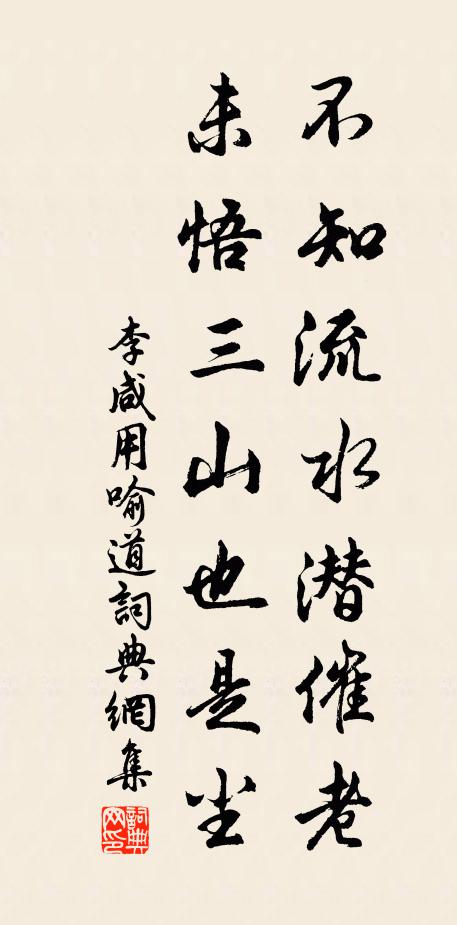 不知流水潜催老
未悟三山也是尘
李咸用喻道詞典網集
詞典网印